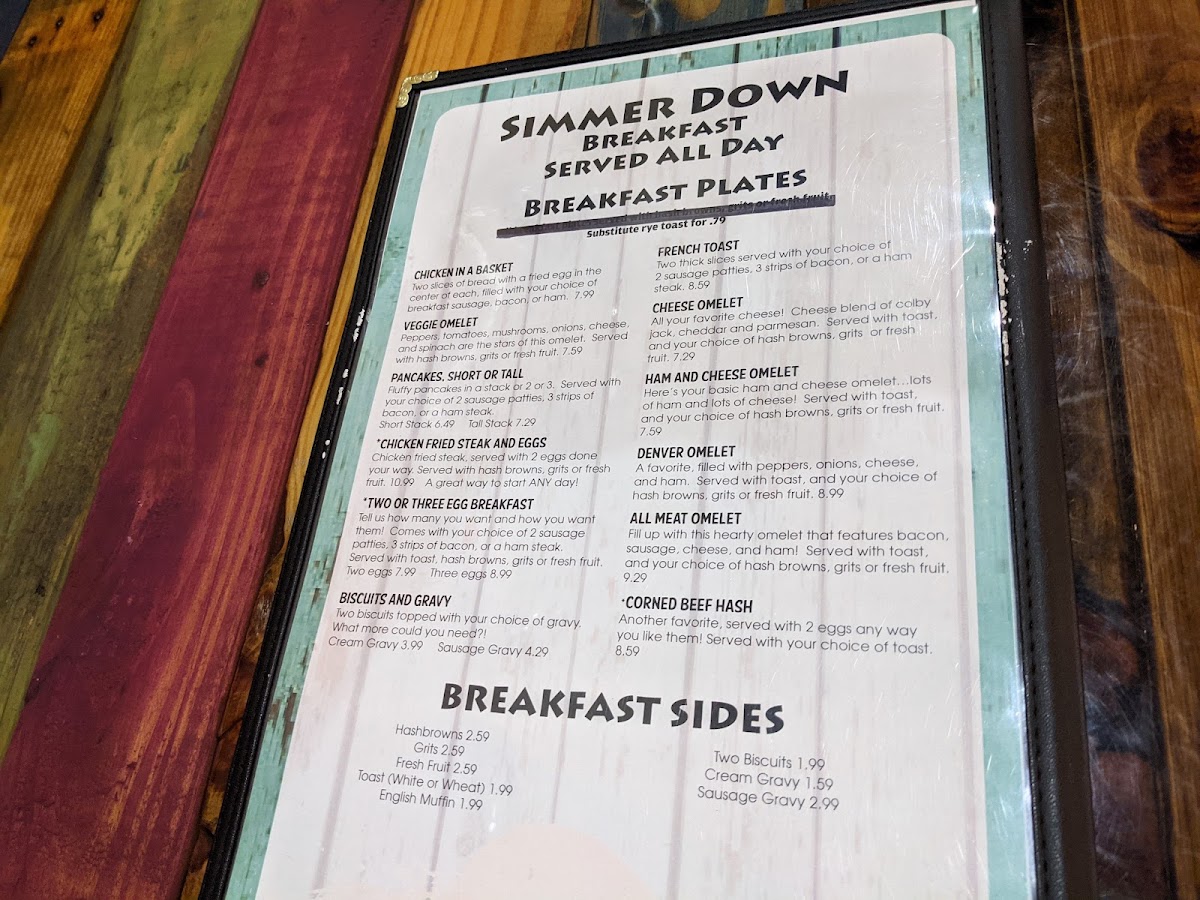 SIMMER DOWN
BREAKFAST
SERVED ALL DAY
BREAKFAST PLATES
with hash browns, grits or fresh fruit
Substitute rye toast for .79
CHICKEN IN A BASKET
Two slices of bread with a fried egg in the
center of each, filled with your choice of
breakfast sausage, bacon, or ham. 7.99
VEGGIE OMELET
Peppers, tomatoes, mushrooms, onions, cheese,
and spinach are the stars of this omelet. Served
with hash browns, grits or fresh fruit. 7.59
PANCAKES. SHORT OR TALL
Fluffy pancakes in a stack or 2 or 3. Served with
your choice of 2 sausage patties, 3 strips of
bacon, or a ham steak.
Short Stack 6.49 Tall Stack 7.29
*CHICKEN FRIED STEAK AND EGGS
Chicken fried steak, served with 2 eggs done
your way. Served with hash browns, grits or fresh
fruit. 10.99 A great way to start ANY day!
*TWO OR THREE EGG BREAKFAST
Tell us how many you want and how you want
them! Comes with your choice of 2 sausage
patties, 3 strips of bacon, or a ham steak.
Served with toast, hash browns, grits or fresh fruit.
Two eggs 7.99 Three eggs 8.99
BISCUITS AND GRAVY
Two biscuits topped with your choice of gravy.
What more could you need?!
Cream Gravy 3.99 Sausage Gravy 4.29
FRENCH TOAST
Two thick slices served with your choice of
2 sausage patties, 3 strips of bacon, or a ham
steak. 8.59
CHEESE OMELET
All your favorite cheese! Cheese blend of colby
jack, cheddar and parmesan. Served with toast,
and your choice of hash browns, grits or fresh
fruit. 7.29
HAM AND CHEESE OMELET
Here's your basic ham and cheese omelet...lots
of ham and lots of cheese! Served with toast,
and your choice of hash browns, grits or fresh fruit.
7.59
DENVER OMELET
A favorite, filled with peppers, onions, cheese,
and ham. Served with toast, and your choice of
hash browns, grits or fresh fruit. 8.99
ALL MEAT OMELET
Fill up with this hearty omelet that features bacon,
sausage, cheese, and ham! Served with toast,
and your choice of hash browns, grits or fresh fruit.
9.29
*CORNED BEEF HASH
Another favorite, served with 2 eggs any way
you like them! Served with your choice of toast.
8.59
BREAKFAST SIDES
Hashbrowns 2.59
Grits 2.59
Fresh Fruit 2.59
Toast (White or Wheat) 1.99
English Muffin 1.99
Two Biscuits 1.99
Cream Gravy 1.59
Sausage Gravy 2.99